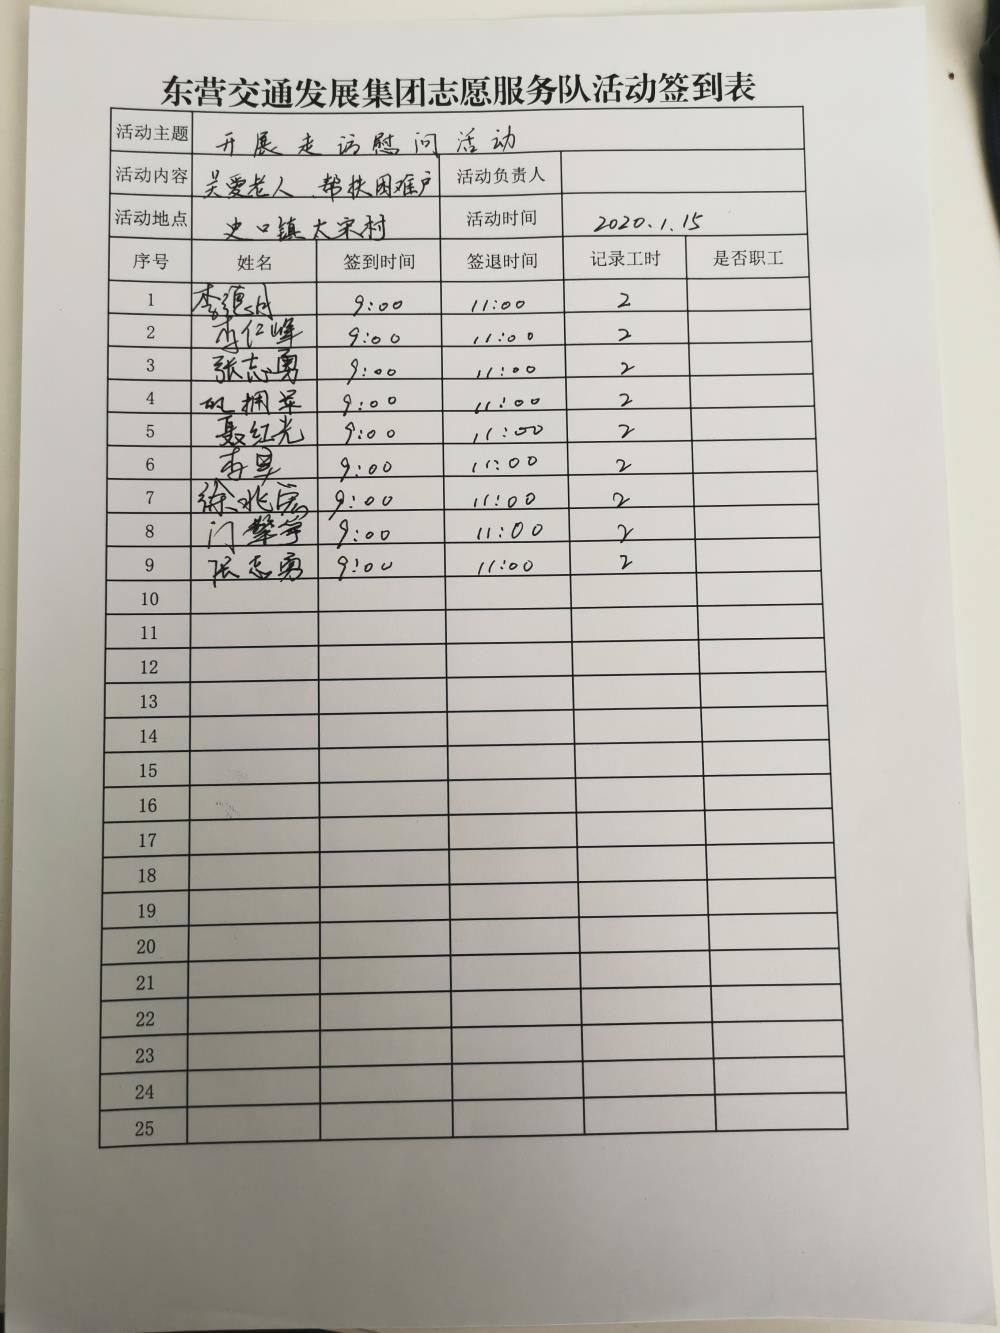 东营交通发展集团志愿服务队活动签到表
活动主题 开展走访慰问活动
活动内容 关爱老人、帮扶困难户 活动负责人
活动地点 史口镇大宋村 活动时间 2020.1.15
序号 姓名 签到时间 签退时间 记录工时 是否职工
1 9:00 11:00 2
2 李仁峰 9:00 11:00 2
3 张志勇 9:00 11:00 2
4 拥军 9:00 11:00 2
5 聂红光 9:00 11:00 2
6 9:00 11:00 2
7 徐兆 9:00 11:00 2
8 门 9:00 11:00 2
9 张志勇 9:00 11:00 2
10
11
12
13
14
15
16
17
18
19
20
21
22
23
24
25